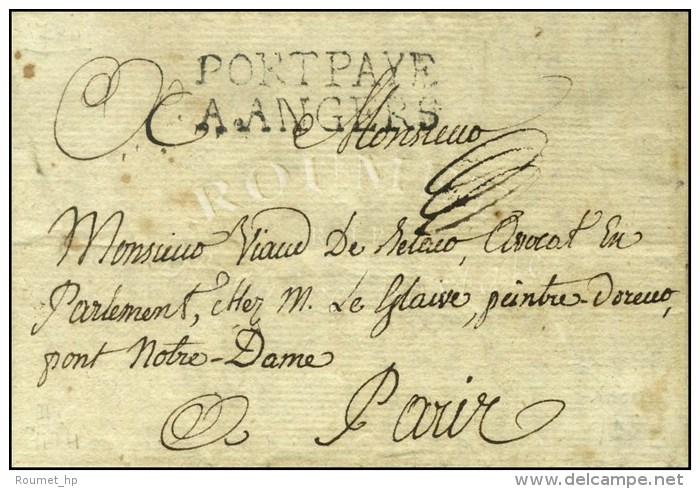 PORT PAYE
A. ANGERS
Monsieur
ROUM
Monsieur Viaud De Avocat En
Parlement, chez M. Le Glaive, peintre-Doreur,
pont Notre-Dame
A Paris
Roumet_hp
delcampe.net